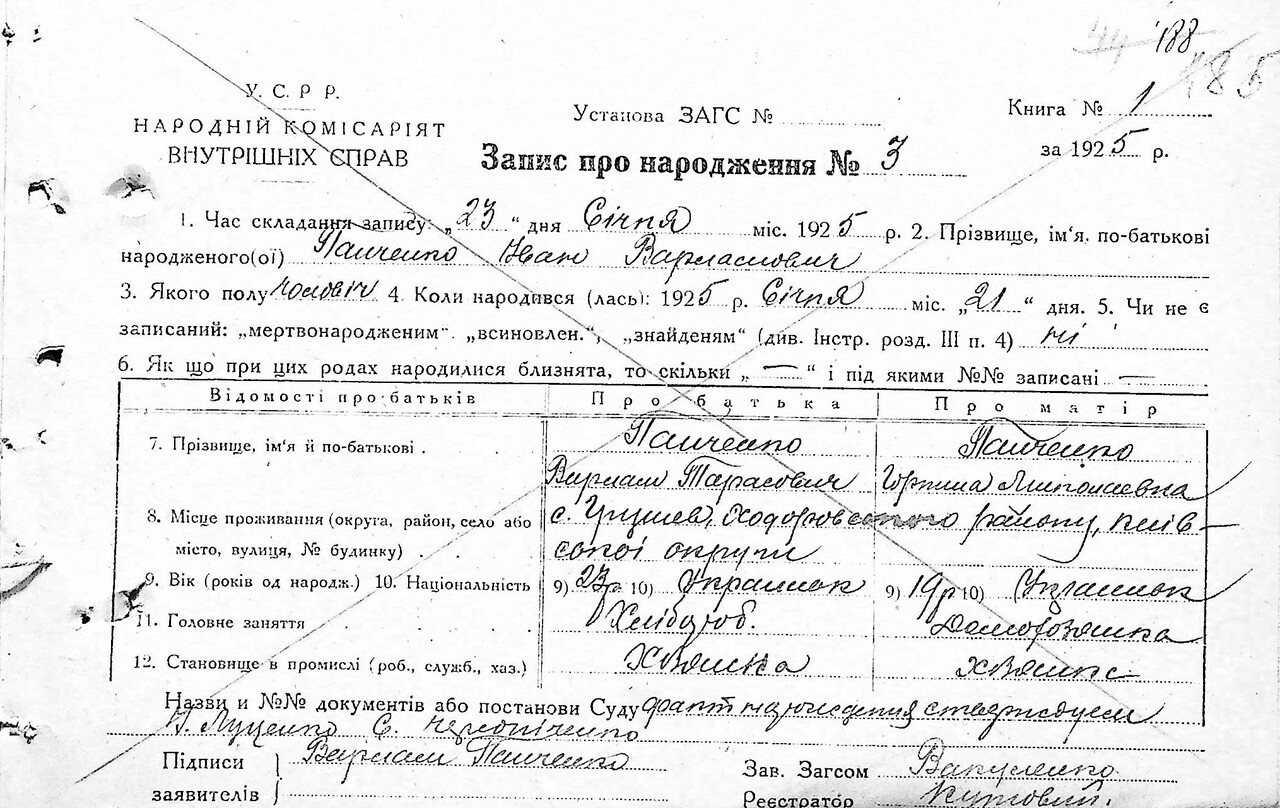 44 188
185
У. С. Р Р.
НАРОДНІЙ КОМІСАРІЯТ
ВНУТРІШНІХ СПРАВ
Установа ЗАГС №
Книга № 1
за 1925 р.
Запис про народження № 3
1. Час складання запису: „23“ дня Січня міс. 1925 р. 2. Прізвище, ім‘я, по-батькові
народженого(ої) Панченко Іван Варламович
3. Якого полу чоловіч 4. Коли народився (лась): 1925 р. Січня міс. „21“ дня. 5. Чи не є
записаний: „мертвонародженим“. „всиновлен.“, „знайденям“ (див. Інстр. розд. III п. 4) ні
6. Як що при цих родах народилися близнята, то скільки „—“ і під якими №№ записані —
Відомості про батьків Про батька Про матір
7. Прізвище, ім‘я й по-батькові . Панченко Панченко
Варлам Тарасович
8. Місце проживання (округа, район, село або с. Грушев, Ходоровского району, Київ-
місто, вулиця, № будинку) . . ської округи
9. Вік (років од народж.) 10. Національність 9) 23р 10) Украинок 9) 19р 10) Украинок
11. Головне заняття . . . . Хлібороб. Домогозяика
12. Становище в промислі (роб., служб., хаз.)
Назви и №№ документів або постанови Суду факт
Луценко С.
Підписи
заявителів } Варлам Панченко
Зав. Загсом Вакуленко
Реєстратор